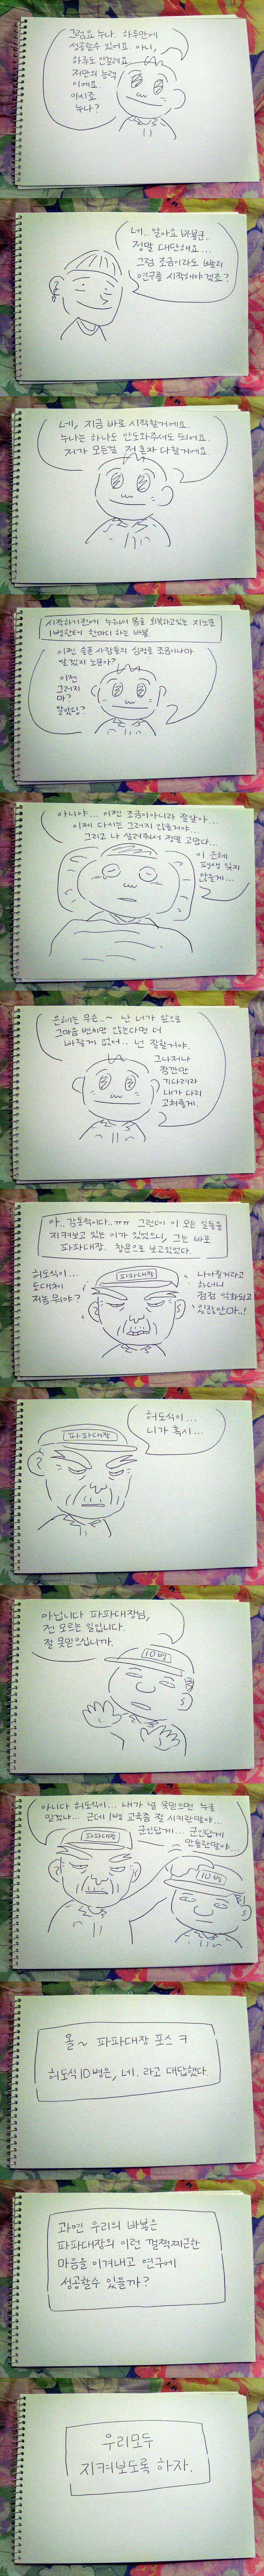 그럼요 누나. 하루만에
성공할수 있어요. 아니,
하루도 안걸려요.
저만의 능력
이에요.
아시죠
누나?
네.. 알아요 바봉군..
정말 대단해요...
그럼 조금이라도 빨리
연구를 시작해야겠죠?
네, 지금 바로 시작할거에요.
누나는 하나도 안도와주셔도 되어요.
저가 모든걸 전 혼자 다할거에요.
시작하기전에 누워서 몸을 회복하고있는 지노문
1병한테 한마디 하는 바봉.
이젠 슬픈 사람들의 심정을 조금이나마
알겠지 노문아?
이젠
그러지
마?
알았딩?
아니야... 이젠 조금이아니라 잘알아...
이제 다시는 그러지 않을거야...
그리고 나 살려줘서 정말 고맙다...
이 은혜
평생 잊지
않을게...
은혜는 무슨..~ 난 너가 앞으로
그마음 변치만 않는다면 더
바랄게 없어.. 넌 잘할거야.
그나저나
잠깐만
기다려라
내가 다리
고쳐줄게.
아.. 감동적이다..ㅠㅠ 그런데 이 모든 일들을
지켜보고 있는 이가 있었으니, 그는 바로
파파대장. 창문으로 보고있었다.
파파대장
허도식이...
도대체
저놈 뭐야?
나아질거라고
하더니
점점 악화되고
있잖안마..!
파파대장
허도식이...
니가 혹시...
아닙니다 파파대장님,
전 모르는 일입니다.
절 못믿으십니까.
10병
아니다 허도식이... 내가 널 못믿으면 누굴
믿겠나... 근데 1병 교육좀 잘 시키란말야...
군인답게... 군인답게
만들란말야...
파파대장
10병
올~ 파파대장 포스 ㅋ
허도식10병은, 네. 라고 대답했다.
과연 우리의 바봉은
파파대장의 이런 껄쩍찌근한
마음을 이겨내고 연구에
성공할수 있을까?
우리모두
지켜보도록 하자.